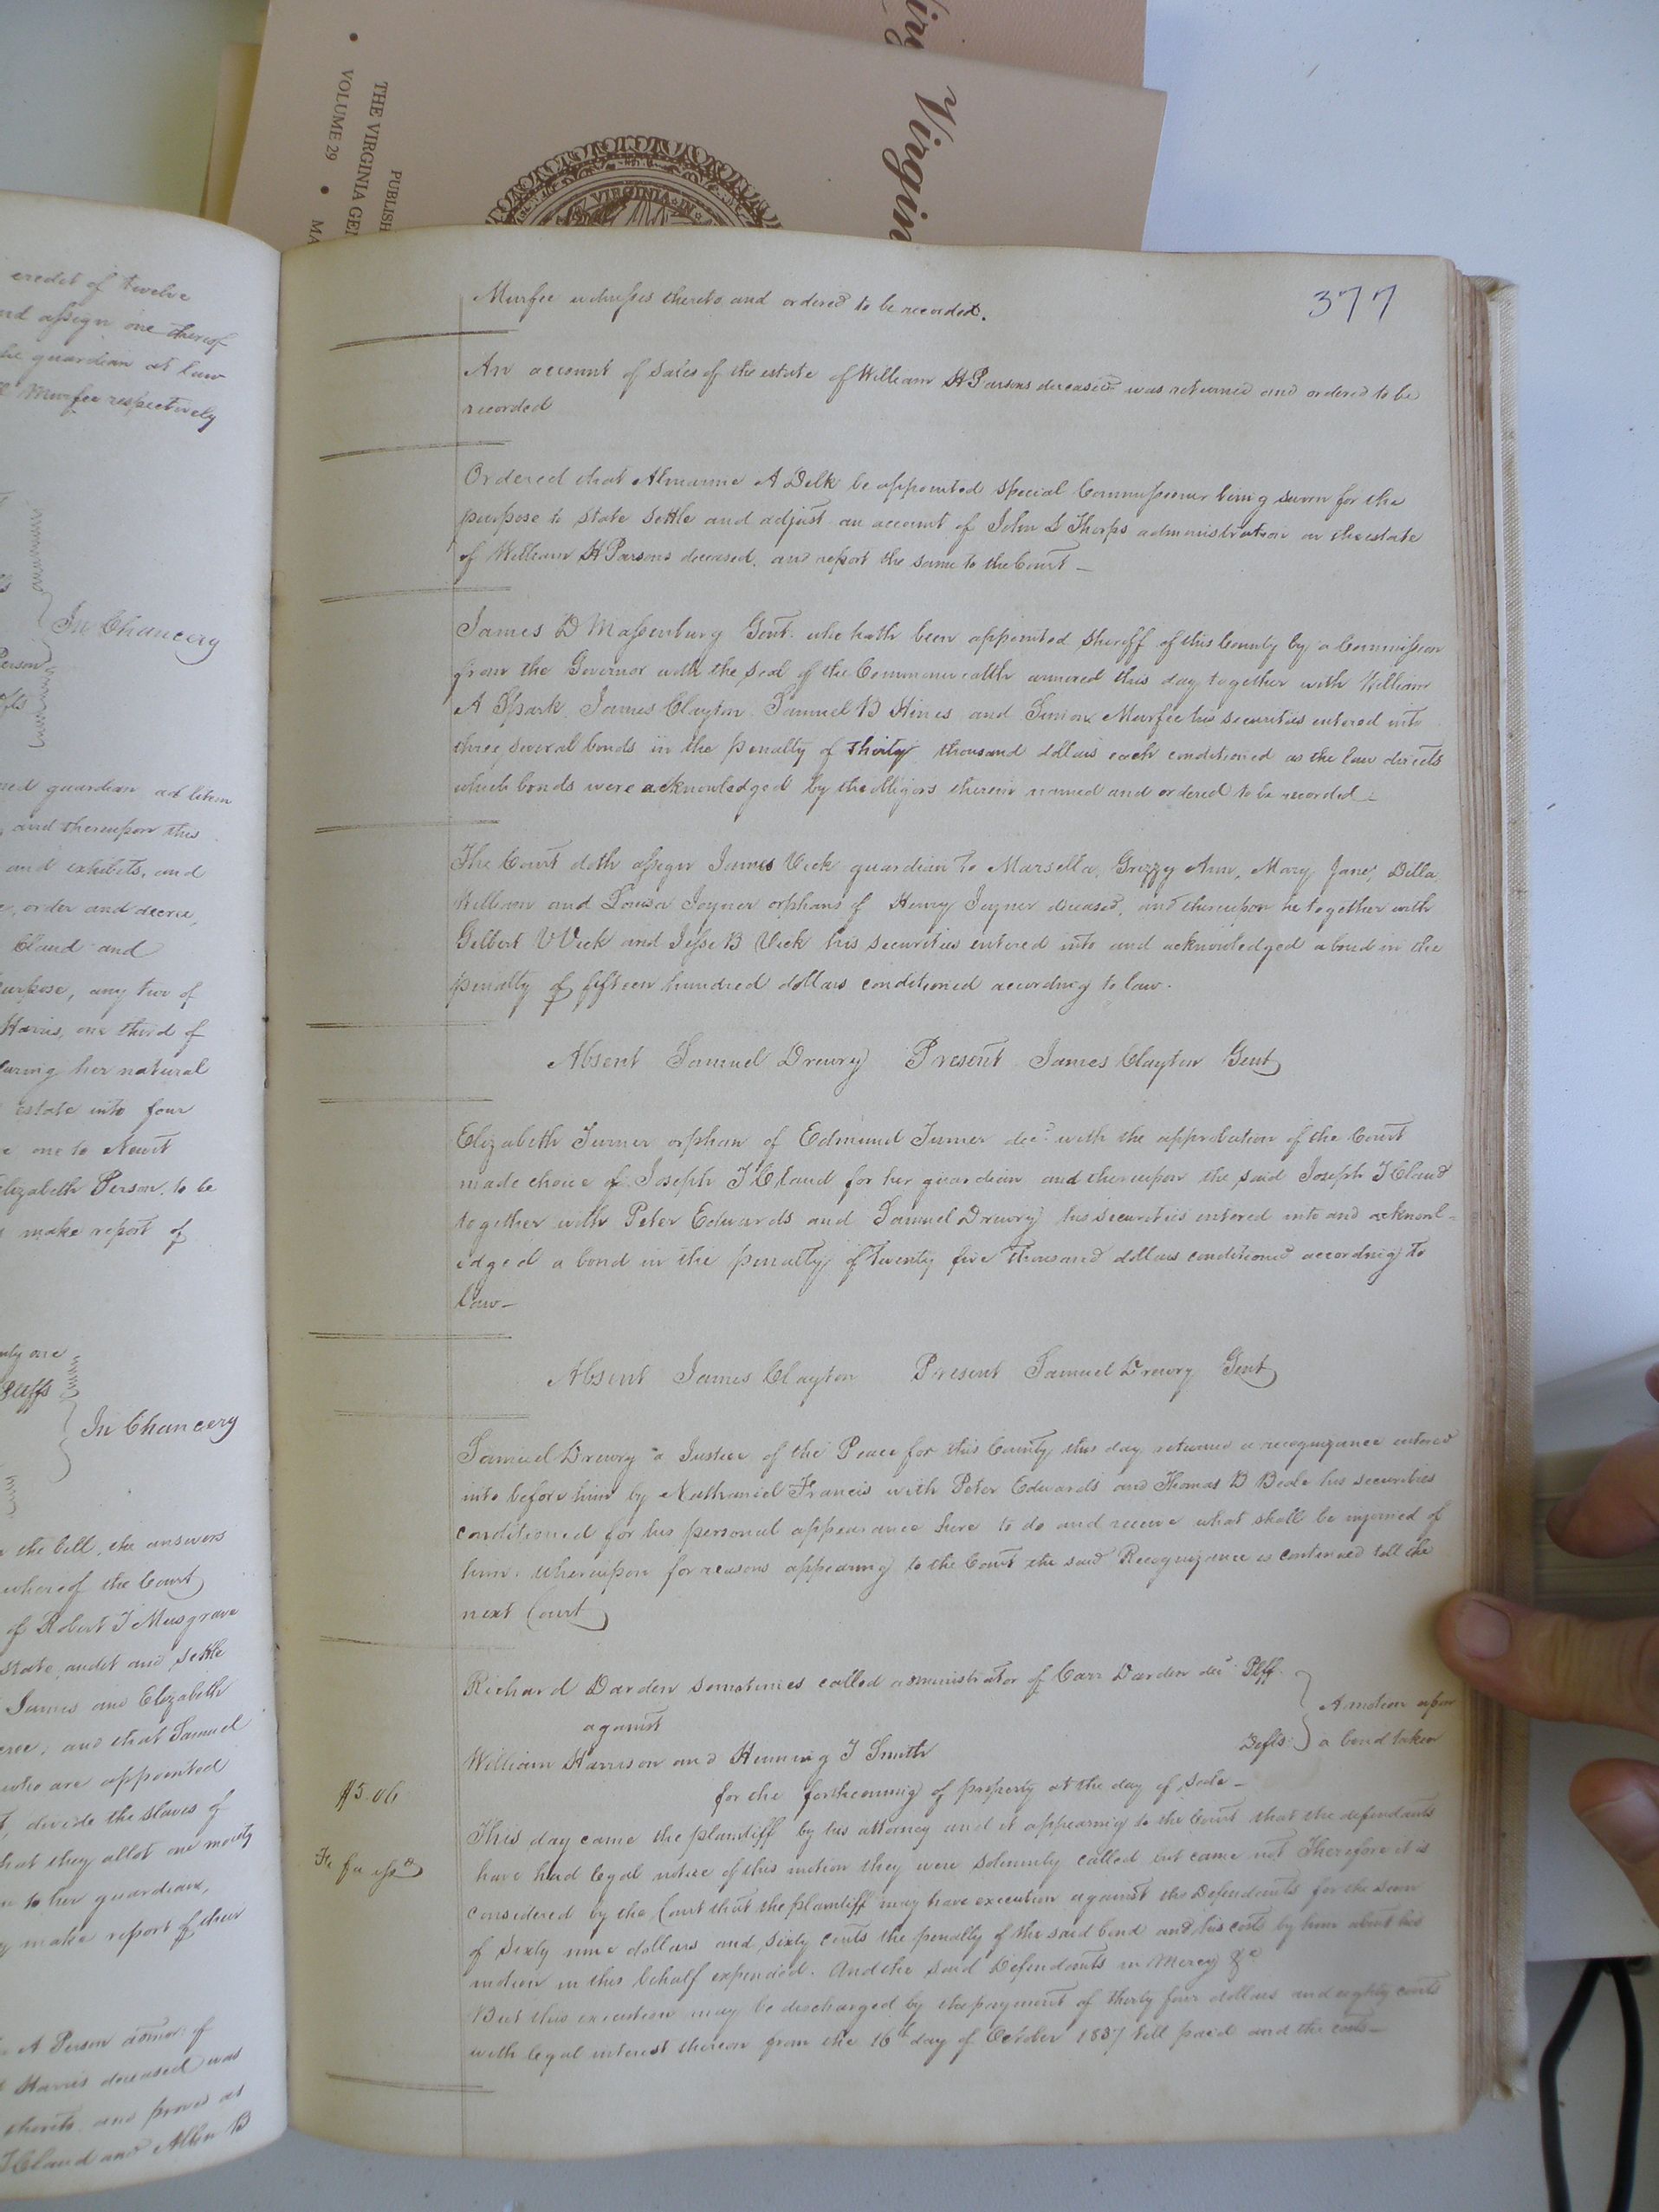 Virgin
Virgin
PUBLISH
THE VIRGINIA GEN
VOLUME 29 • MA
VIRGINIA IN
credit of twelve
and assign one thereof
he guardian at law
Murfee respectively
In Chancery
Person
ad guardian ad litem
and thereupon this
and exhibits, and
order and decree,
Claud and
purpose, any two of
Harris, one third of
during her natural
estate into four
one to Newit
Elizabeth Person, to be
make report of
Pltffs
In Chancery
the bill, the answers
whereof the Court
of Robert T Musgrave
state, audit and settle
James and Elizabeth
and that Samuel
who are appointed
divide the slaves of
that they allot one moiety
to her guardian,
make report of their
A Person admor of
Harris deceased was
thereto and proved as
Claud and Albin B
377
Murfee witnesses thereto and ordered to be recorded.
An account of Sales of the estate of William H Parsons deceased was returned and ordered to be
recorded
Ordered that Almarine A Delk be appointed Special Commissioner being sworn for the
purpose to state settle and adjust an account of John S Thorps administration on the estate
of William H Parsons deceased, and report the same to the Court –
James D Massenburg Gent. who hath been appointed Sheriff of this County by a Commission
from the Governor with the seal of the Commonwealth annexed this day together with William
A Spark, James Clayton Samuel B Hines and Simon Murfee his securities entered into
three several bonds in the penalty of thirty thousand dollars each conditioned as the law directs
which bonds were acknowledged by the obligors therein named and ordered to be recorded –
The Court doth assign James Vick guardian to Marsella, Grizzy Ann, Mary Jane, Dilla
William and Louisa Joyner orphans of Henry Joyner deceased, and thereupon he together with
Gilbert V Vick and Jesse B Vick his securities entered into and acknowledged a bond in the
penalty of fifteen hundred dollars conditioned according to law.
Absent Samuel Drewry Present James Clayton Gent
Elizabeth Turner orphan of Edmund Turner decd with the approbation of the Court
made choice of Joseph T Claud for her guardian and thereupon the said Joseph T Claud
together with Peter Edwards and Samuel Drewry his securities entered into and acknowl-
edged a bond in the penalty of twenty five thousand dollars conditioned according to
law –
Absent James Clayton Present Samuel Drewry Gent
Samuel Drewry a Justice of the Peace for this County this day returned a recognizance entered
into before him by Nathaniel Francis with Peter Edwards and Thomas B Beale his securities
conditioned for his personal appearance here to do and receive what shall be injoined of
him: Whereupon for reasons appearing to the Court the said Recognizance is continued till the
next Court
Richard Darden sometimes called administrator of Carr Darden decd Pltff.
against
A motion upon
William Harrison and Henning T Smith Defts. a bond taken
for the forthcoming of property at the day of sale –
$5.06
This day came the plaintiff by his attorney and it appearing to the Court that the defendants
have had legal notice of this motion they were solemnly called but came not Therefore it is
Fi fa issd
considered by the Court that the plaintiff may have execution against the Defendants for the sum
of sixty nine dollars and sixty cents the penalty of the said bond and his costs by him about his
motion in this behalf expended. And the said Defendants in Mercy &c
But this execution may be discharged by the payment of thirty four dollars and eighty cents
with legal interest thereon from the 16th day of October 1837 till paid and the costs –